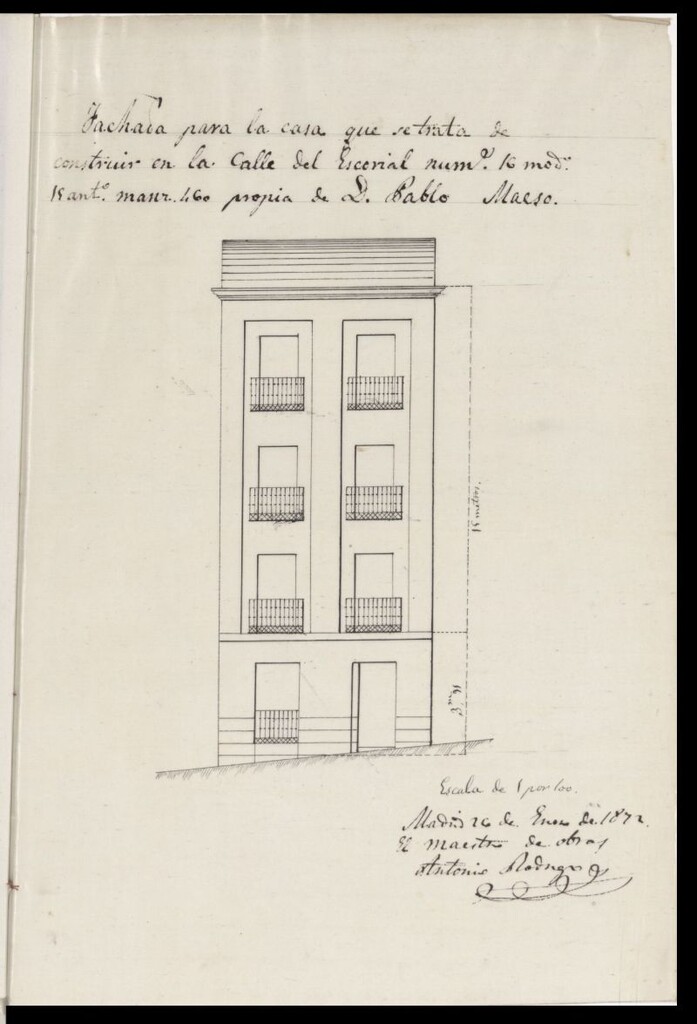 Fachada para la casa que se trata de
construir en la Calle del Escorial num.º 16 mod.º
15 ant.º manz. 460 propia de D. Pablo Maeso.
15 metros.
Escala de 1 por 100.
Madrid 26 de Enero de 1872.
El maestro de obras
Antonio